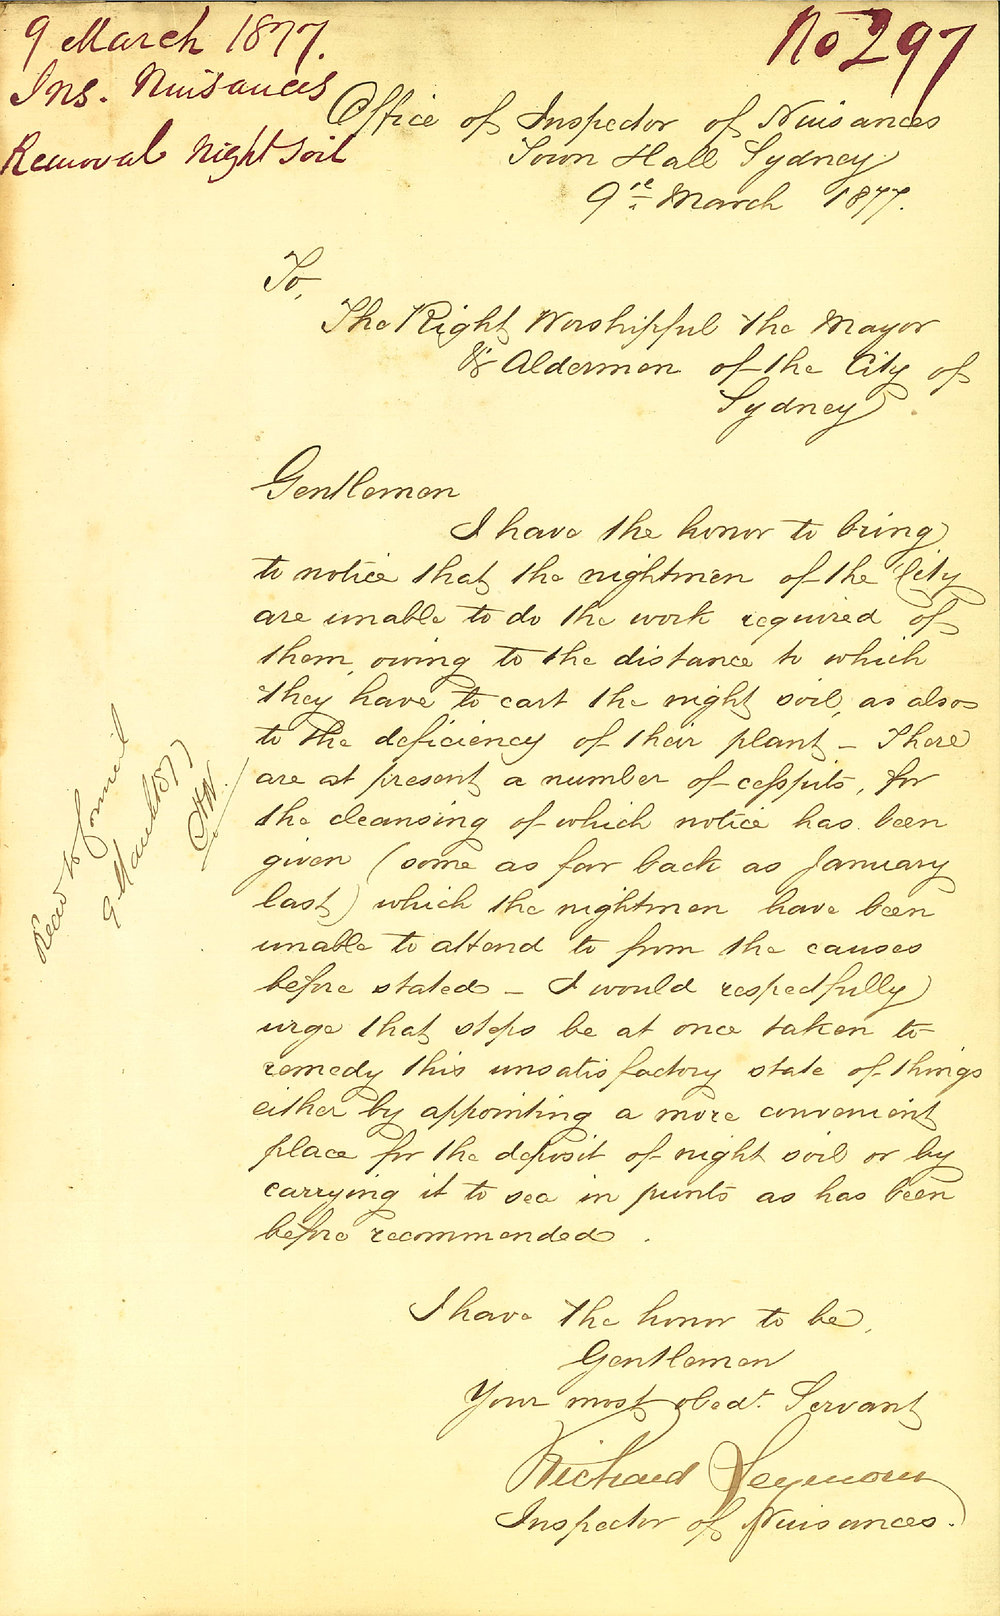 9 March 1877.
Ins. Nuisances
Removal Night Soil
No 297
Office of Inspector of Nuisances
Town Hall Sydney
9th March 1877.
To,
The Right Worshipful the Mayor
& Aldermen of the City of
Sydney
Gentlemen
I have the honor to bring
to notice that the nightmen of the City
are unable to do the work required of
them, owing to the distance to which
they have to cart the night soil, as also
to the deficiency of their plant – There
are at present a number of cesspits, for
the cleansing of which notice has been
given (some as far back as January
last) which the nightmen have been
unable to attend to from the causes
before stated – I would respectfully
urge that steps be at once taken to
remedy this unsatisfactory state of things
either by appointing a more convenient
place for the deposit of night soil or by
carrying it to sea in punts as has been
before recommended.
I have the honor to be,
Gentlemen
Your most obedt. Servant
Richard Seymour
Inspector of Nuisances.
Read to Council
9 March 1877